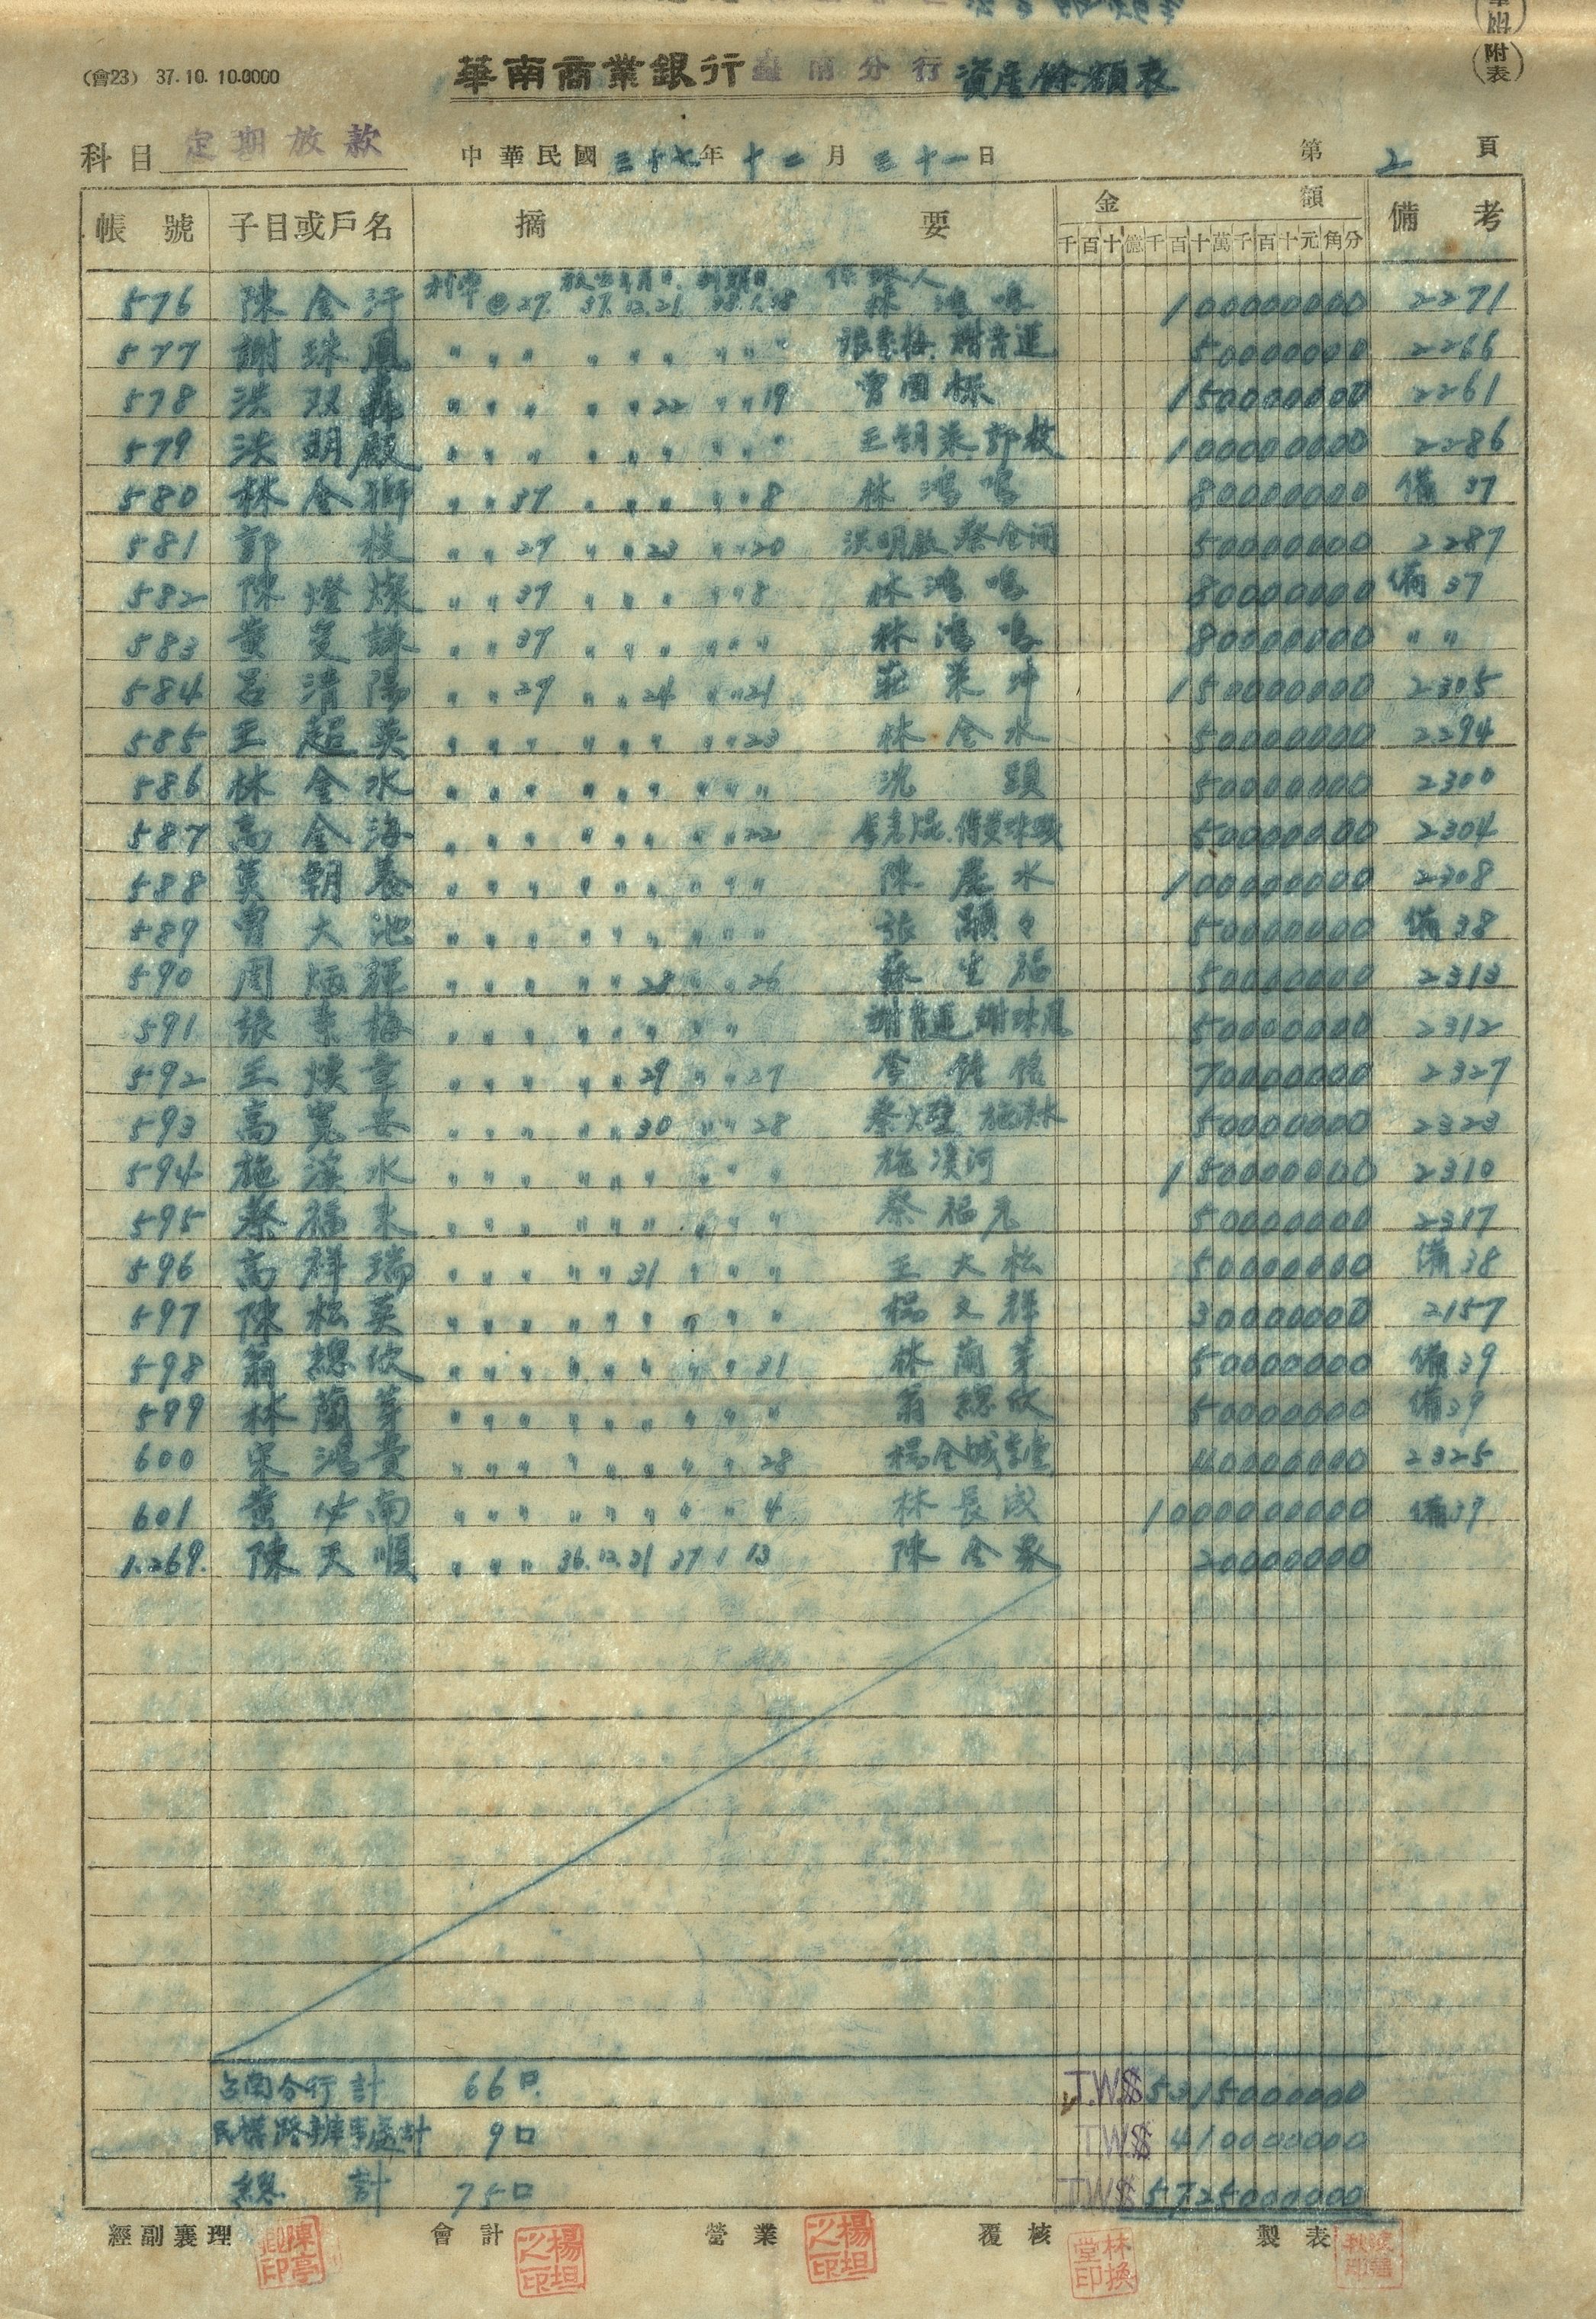 (會23) 37.10.10.0000
華南商業銀行臺南分行資產餘額表
(附表)
科目 定期放款 中華民國三十七年十二月三十一日 第2頁
帳號 子目或戶名 摘要 金額 備考
千百十億千百十萬千百十元角分
利率 放出年月日 到期日 保証人
576 陳金汗 @27 37.12.21 38.1.18 林鴻鳴 100000000 2271
577 謝珠鳳 〃〃〃 〃〃〃 〃〃〃 張素梅、謝青蓮 50000000 2266
578 洪双彝 〃〃〃 〃〃22 〃〃19 曾國樑 150000000 2261
579 洪明殿 〃〃〃 〃〃〃 〃〃〃 王朝榮、郭枝 100000000 2286
580 林金獅 〃〃37 〃〃〃 〃〃8 林鴻鳴 80000000 備37
581 郭枝 〃〃27 〃〃23 〃〃20 洪明殿 蔡全涌 50000000 2287
582 陳燈燦 〃〃37 〃〃〃 〃〃8 林鴻鳴 80000000 備37
583 黃定謙 〃〃37 〃〃〃 〃〃〃 林鴻鳴 80000000 〃〃
584 呂清陽 〃〃27 〃〃24 〃〃21 莊萊坤 150000000 2305
585 王超英 〃〃〃 〃〃〃 〃〃23 林金水 50000000 2294
586 林金水 〃〃〃 〃〃〃 〃〃〃 沈頭 50000000 2300
587 高金海 〃〃〃 〃〃〃 〃〃22 50000000 2304
588 莫朝養 〃〃〃 〃〃〃 〃〃〃 陳屘水 100000000 2308
589 曾大池 〃〃〃 〃〃〃 〃〃〃 張 50000000 備38
590 周炳輝 〃〃〃 〃〃28 〃〃26 蘇生福 50000000 2313
591 張素梅 〃〃〃 〃〃〃 〃〃〃 謝青蓮 謝珠鳳 50000000 2312
592 王煥章 〃〃〃 〃〃29 〃〃27 李 70000000 2327
593 高寬安 〃〃〃 〃〃30 〃〃28 蔡火璧 施溪水 50000000 2323
594 施溪水 〃〃〃 〃〃〃 〃〃〃 施溪河 150000000 2310
595 蔡福來 〃〃〃 〃〃〃 〃〃〃 蔡福元 50000000 2317
596 高祥瑞 〃〃〃 〃〃31 〃〃〃 王大松 50000000 備38
597 陳松英 〃〃〃 〃〃〃 〃〃〃 楊文群 30000000 2157
598 翁總欣 〃〃〃 〃〃〃 〃〃31 林蘭芽 50000000 備39
599 林蘭芽 〃〃〃 〃〃〃 〃〃〃 翁總欣 50000000 備39
600 宋鴻貴 〃〃〃 〃〃〃 〃〃28 楊金城 40000000 2325
601 黃 南 〃〃〃 〃〃〃 〃〃4 林長成 1000000000 備39
1.269. 陳天順 〃〃〃 36.12.31 37 1 13 陳金界 20000000
台南分行計 66口 TW$5315000000
民權路辦事處計 9口 TW$410000000
總計 75口 TW$5725000000
經副襄理 會計 營業 覆核 製表
陳亭卿印 楊坦之印 楊坦之印 林換堂印